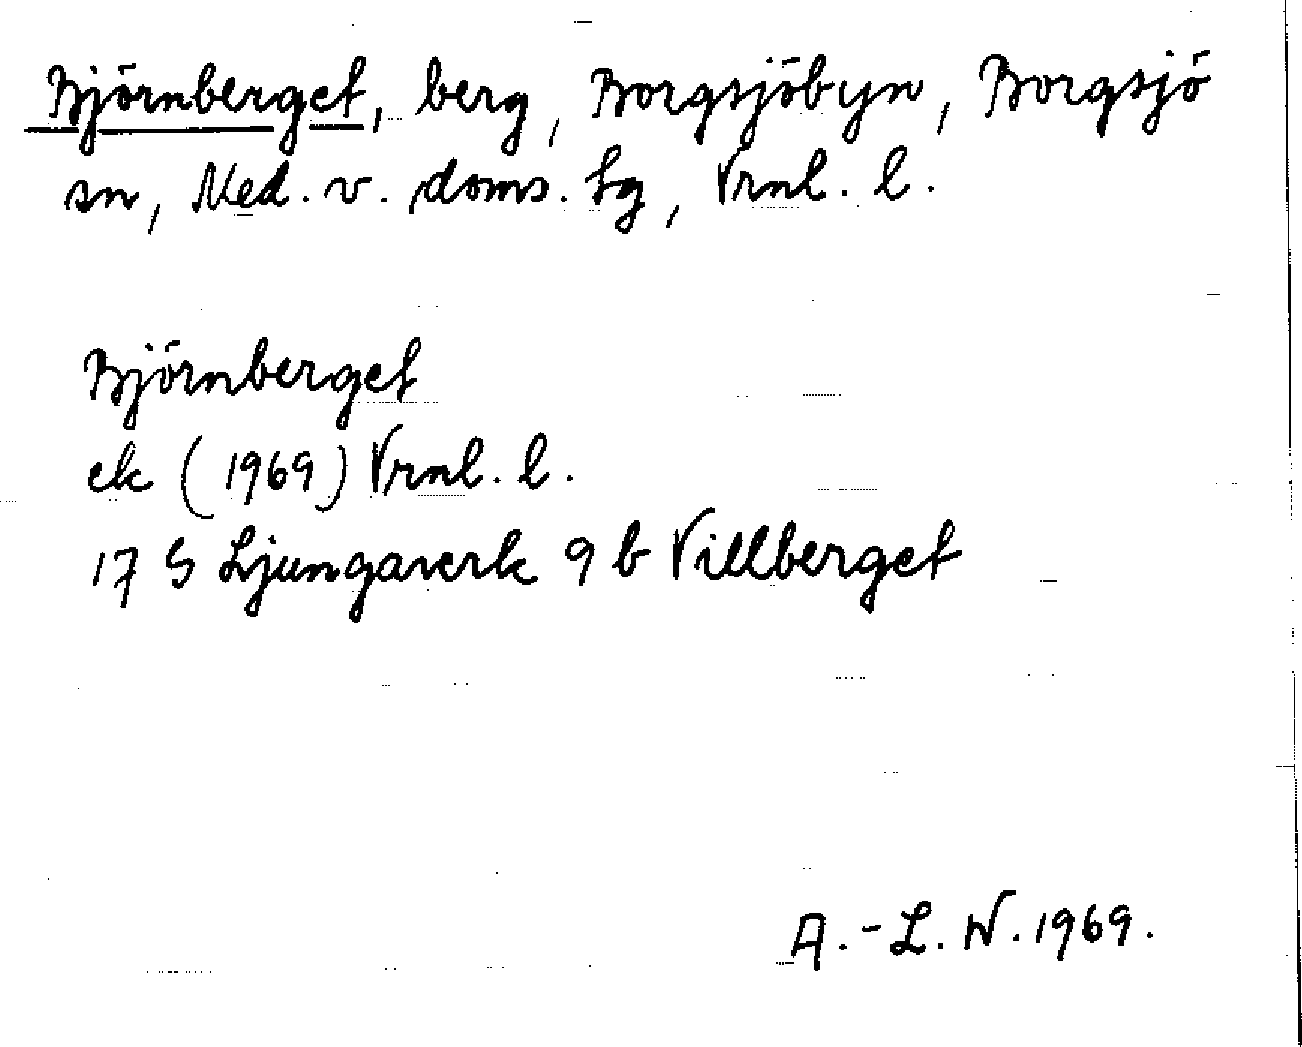 Björnberget, berg, Borgsjöbyn, Borgsjö
sn, Med. v. doms. tg, Vrnl. l.
Björnberget
ek (1969) Vrnl. l.
17 G Ljungaverk 9 b Villberget
A.-L. W. 1969.